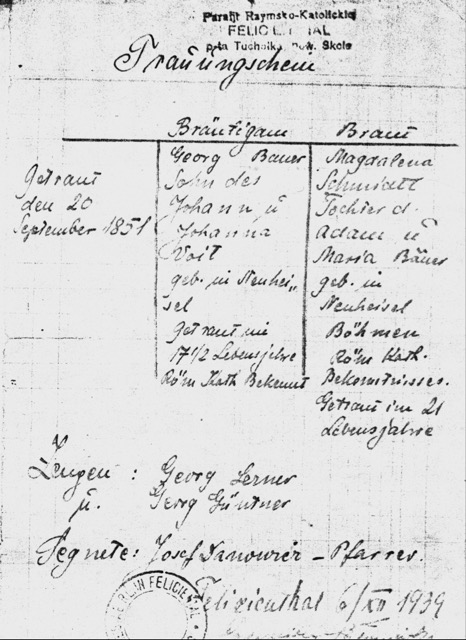 Parafji Raymsko-Katolickiej
FELICIENTHAL
p-ta Tuchnika pow. Skole
Trauungschein
Bräutigam
Braut
Getraut
den 20
September 1851
Georg Bauer
Sohn des
Johann u
Johanna
Voit
geb. in Neuhei„
sel
Getraut im
17 1/2 Lebensjahre
Röm Kath Bekennt
Magdalena
Schmidtl
Tochter d.
Adam u
Maria Bäuer
geb. in
Neuheisel
Böhmen
Röm Kath.
Bekenntnisses.
Getraut im 21
Lebensjahre
Zeugen : Georg Lerner
u. Georg Güntner
Segnete: Josef – Pfarrer.
FELICIENTAL
Felizienthal 6/XII 1939